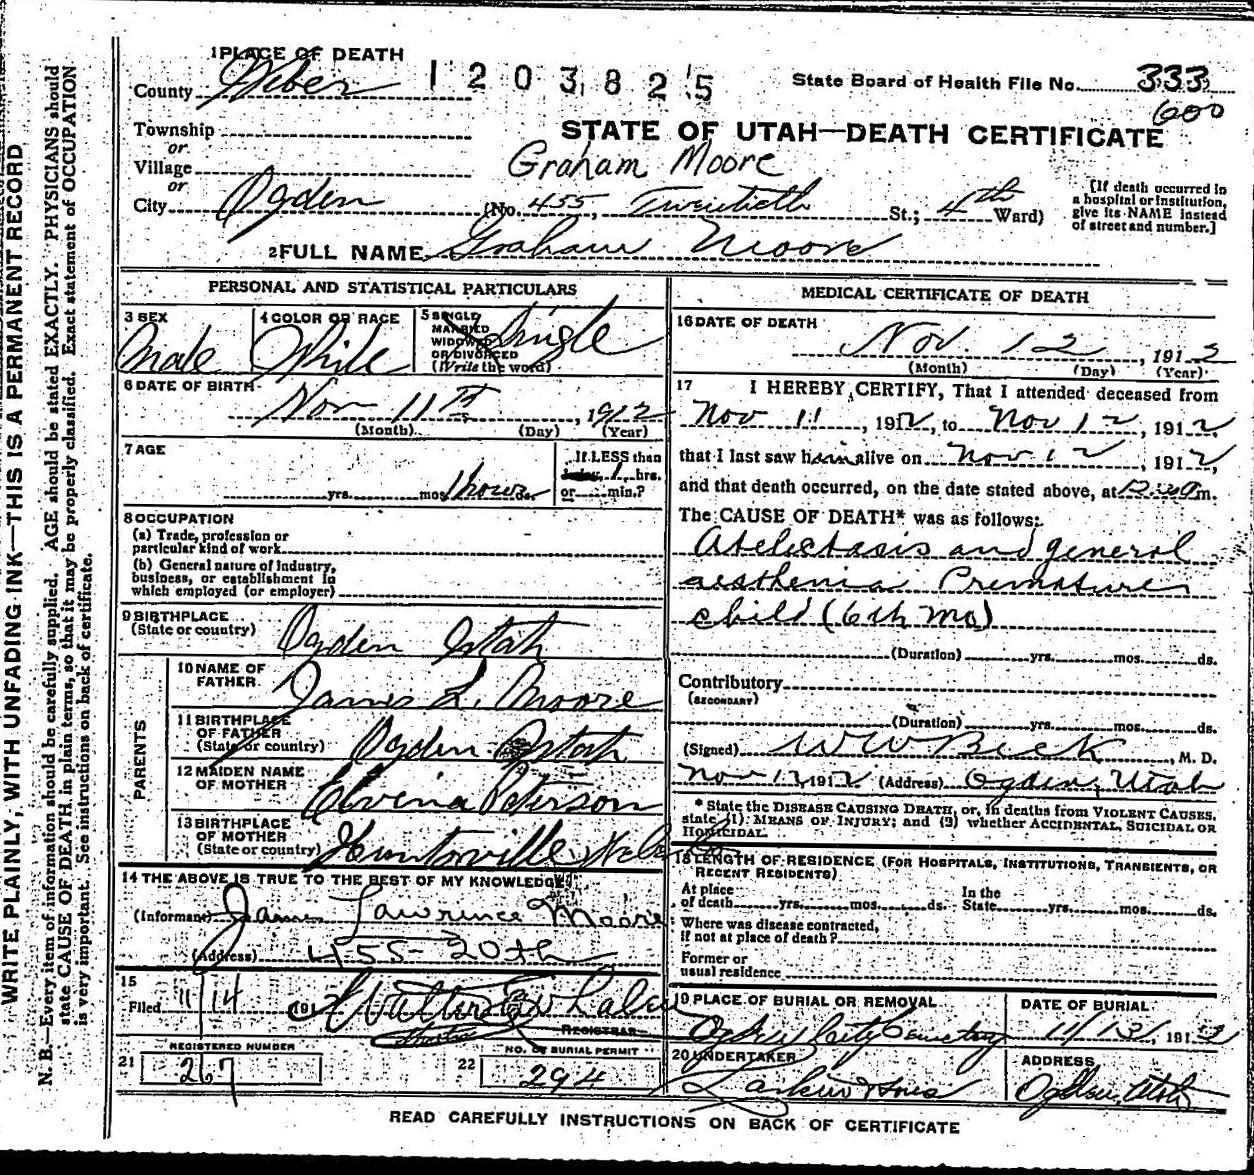 1 PLACE OF DEATH
1203825
State Board of Health File No. 333
600
County Weber
Township
or
STATE OF UTAH—DEATH CERTIFICATE
Village
Graham Moore
or
City Ogden (No. 455, Twentieth St.; 4th Ward)
[If death occurred in
a hospital or institution,
give its NAME instead
of street and number.]
2 FULL NAME Graham Moore
PERSONAL AND STATISTICAL PARTICULARS
3 SEX
Male
4 COLOR OR RACE
White
5 SINGLE
MARRIED
WIDOWED
OR DIVORCED
(Write the word)
Single
6 DATE OF BIRTH
Nov 11th, 1912
(Month) (Day) (Year)
7 AGE
yrs. mos. 1 hour ds.
If LESS than
1 hrs.
or min.?
8 OCCUPATION
(a) Trade, profession or
particular kind of work
(b) General nature of Industry,
business, or establishment in
which employed (or employer)
9 BIRTHPLACE
(State or country)
Ogden Utah
PARENTS
10 NAME OF
FATHER
James L. Moore
11 BIRTHPLACE
OF FATHER
(State or country)
Ogden Utah
12 MAIDEN NAME
OF MOTHER
Elvina Peterson
13 BIRTHPLACE
OF MOTHER
(State or country)
Huntsville
14 THE ABOVE IS TRUE TO THE BEST OF MY KNOWLEDGE
(Informant) James Lawrence Moore
(Address) 455-20th
15
Filed 11/14 191
REGISTRAR
REGISTERED NUMBER
21 267
NO. OF BURIAL PERMIT
22 294
MEDICAL CERTIFICATE OF DEATH
16 DATE OF DEATH
Nov. 12, 1912
(Month) (Day) (Year)
17 I HEREBY CERTIFY, That I attended deceased from
Nov 11, 1912, to Nov 12, 1912,
that I last saw him alive on Nov 12, 1912,
and that death occurred, on the date stated above, at 12.30 m.
The CAUSE OF DEATH* was as follows:
Atelectasis and general
aesthenia Premature
child (6th mo)
(Duration) yrs. mos. ds.
Contributory
(SECONDARY)
(Duration) yrs. mos. ds.
(Signed) W W Beck, M. D.
Nov 12, 1912 (Address) Ogden, Utah
* State the DISEASE CAUSING DEATH, or, in deaths from VIOLENT CAUSES,
state (1) MEANS OF INJURY; and (2) whether ACCIDENTAL, SUICIDAL OR
HOMICIDAL.
18 LENGTH OF RESIDENCE (FOR HOSPITALS, INSTITUTIONS, TRANSIENTS, OR
RECENT RESIDENTS)
At place
of death yrs. mos. ds.
In the
State yrs. mos. ds.
Where was disease contracted,
if not at place of death?
Former or
usual residence
19 PLACE OF BURIAL OR REMOVAL
Ogden City Cemetery
DATE OF BURIAL
11/13/, 1912
20 UNDERTAKER
Larkin & Sons
ADDRESS
Ogden, Utah
READ CAREFULLY INSTRUCTIONS ON BACK OF CERTIFICATE
WRITE PLAINLY, WITH UNFADING INK—THIS IS A PERMANENT RECORD
N. B.—Every item of information should be carefully supplied. AGE should be stated EXACTLY. PHYSICIANS should
state CAUSE OF DEATH in plain terms, so that it may be properly classified. Exact statement of OCCUPATION
is very important. See instructions on back of certificate.